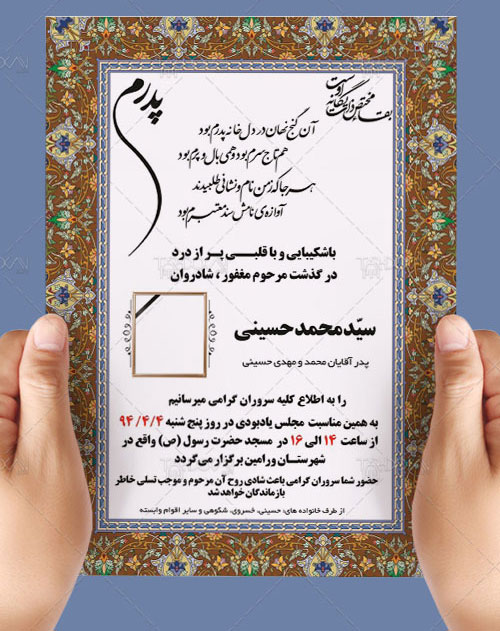 بقا مختص ذات یگانه اوست
پدرم
آن گنج نهان در دل خانه پدرم بود
هم تاج سرم بود و همی بال و پرم بود
هر جا که ز من نام و نشانی طلبیدند
آوازه‌ی نامش سند معتبرم بود
باشکیبایی و با قلبی پر از درد
درگذشت مرحوم مغفور، شادروان
سیّد محمد حسینی
پدر آقایان محمد و مهدی حسینی
را به اطلاع کلیه سروران گرامی میرسانیم
به همین مناسبت مجلس یادبودی در روز پنج شنبه ۹۴/۴/۴
از ساعت ۱۴ الی ۱۶ در مسجد حضرت رسول (ص) واقع در
شهرستان ورامین برگزار می‌گردد
حضور شما سروران گرامی باعث شادی روح آن مرحوم و موجب تسلی خاطر
بازماندگان خواهد شد
از طرف خانواده های: حسینی، خسروی، شکوهی و سایر اقوام وابسته